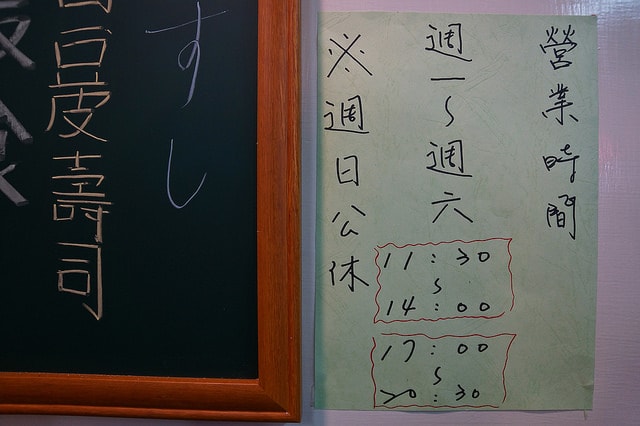 すし
豆皮壽司
營業時間
週一～週六
11:30
～
14:00
17:00
～
20:30
※週日公休